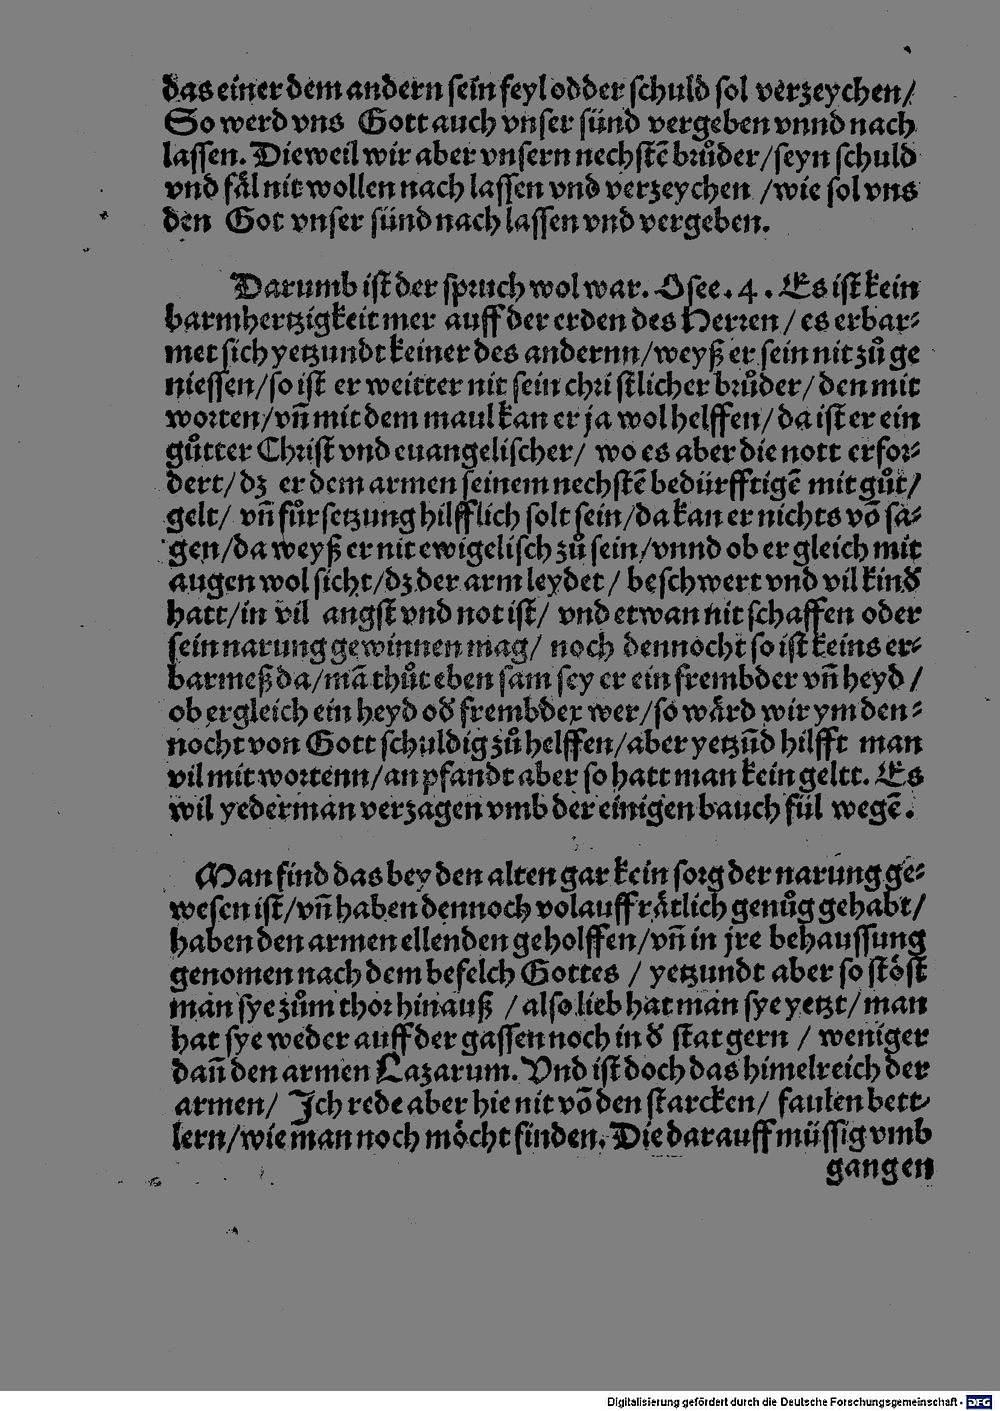 das einer dem andern sein feyl odder schuld sol verzeychen/
So werd vns Gott auch vnser sünd vergeben vnnd nach
lassen. Dieweil wir aber vnsern nechstē brůder/seyn schuld
vnd fäl nit wollen nach lassen vnd verzeychen /wie sol vns
den Got vnser sünd nach lassen vnd vergeben.
Darumb ist der spruch wol war. Osee. 4. Es ist kein
barmhertzigkeit mer auff der erden des Herren / es erbar⸗
met sich yetzundt keiner des andernn/weyß er sein nit zů ge
niessen/so ist er weitter nit sein christlicher brůder/den mit
worten/vn̄ mit dem maul kan er ja wol helffen/da ist er ein
gůtter Christ vnd euangelischer/ wo es aber die nott erfor⸗
dert/dz er dem armen seinem nechstē bedürfftigē mit gůt/
gelt/ vn̄ fůrsetzung hilfflich solt sein/da kan er nichts vō sa⸗
gen/da weyß er nit ewigelisch zů sein/vnnd ob er gleich mit
augen wol sicht/dz der arm leydet / beschwert vnd vil kind
hatt/in vil angst vnd not ist/ vnd etwan nit schaffen oder
sein narung gewinnen mag/ noch dennocht so ist keins er⸗
barmeß da/mā thůt eben sam sey er ein frembder vn̄ heyd /
ob er gleich ein heyd od̓ frembder wer/so wärd wir ym den⸗
nocht von Gott schuldig zů helffen/aber yetzūd hilfft man
vil mit wortenn/an pfandt aber so hatt man kein geltt. Es
wil yederman verzagen vmb der einigen bauch fül wegē.
Man find das bey den alten gar kein sorg der narung ge⸗
wesen ist/vn̄ haben dennoch volauff rätlich genůg gehabt/
haben den armen ellenden geholffen/vn̄ in jre behaussung
genomen nach dem befelch Gottes / yetzundt aber so stöst
man sye zům thor hinauß / also lieb hat man sye yetzt/man
hat sye weder auff der gassen noch in d̓ stat gern / weniger
dan̄ den armen Lazarum. Vnd ist doch das himelreich der
armen/ Ich rede aber hie nit vō den starcken/ faulen bett⸗
lern/wie man noch möcht finden. Die darauff müssig vmb
gangen
Digitalisierung gefördert durch die Deutsche Forschungsgemeinschaft - DFG